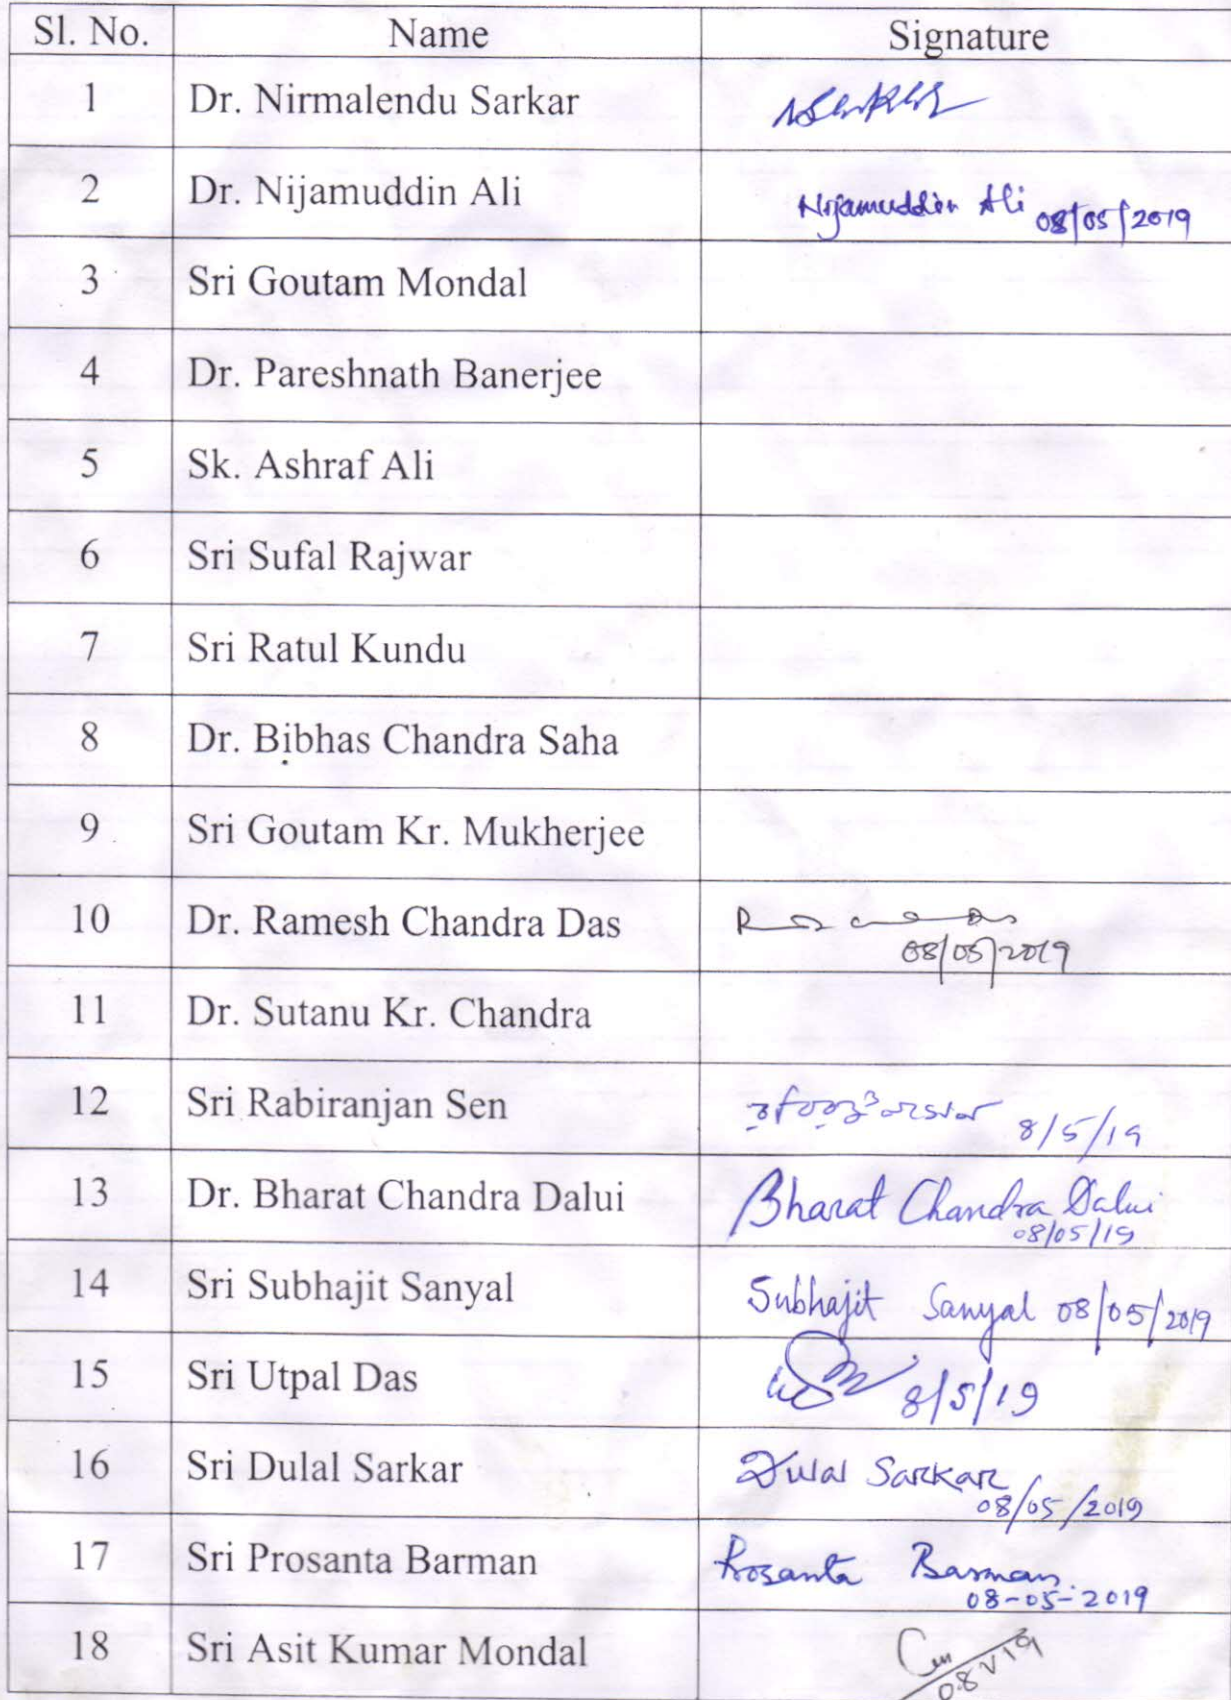 Sl. No. Name Signature
1 Dr. Nirmalendu Sarkar
2 Dr. Nijamuddin Ali Nijamuddin Ali 08/05/2019
3 Sri Goutam Mondal
4 Dr. Pareshnath Banerjee
5 Sk. Ashraf Ali
6 Sri Sufal Rajwar
7 Sri Ratul Kundu
8 Dr. Bibhas Chandra Saha
9 Sri Goutam Kr. Mukherjee
10 Dr. Ramesh Chandra Das
08/05/2019
11 Dr. Sutanu Kr. Chandra
12 Sri Rabiranjan Sen 8/5/19
13 Dr. Bharat Chandra Dalui Bharat Chandra Dalui
08/05/19
14 Sri Subhajit Sanyal Subhajit Sanyal 08/05/2019
15 Sri Utpal Das 8/5/19
16 Sri Dulal Sarkar Dulal Sarkar
08/05/2019
17 Sri Prosanta Barman Prosanta Barman
08-05-2019
18 Sri Asit Kumar Mondal